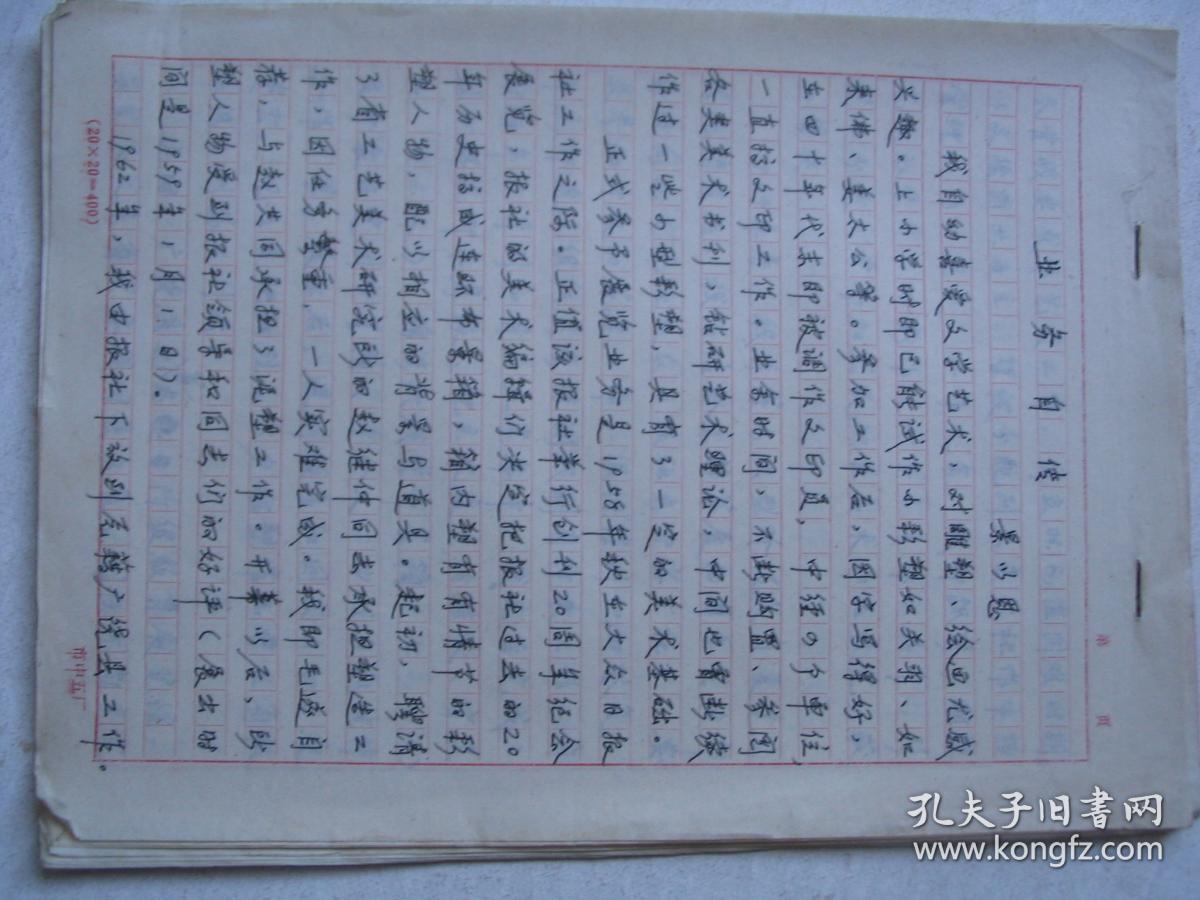 第 页
业务自传
景以恩
我自幼喜爱文学艺术,对雕塑、绘画尤感
兴趣。上小学时即已能试作小彩塑如关羽、如
来佛、姜太公等。参加工作后,因字写得好,
在四十年代末即被调作文印员,中经四个单位,
一直搞文印工作。业余时间,不断购置、参阅
各类美术书刊,钻研艺术理论,中间也曾断续
作过一些小型彩塑,具有了一定的美术基础。
正式参予展览业务是1958年秋在大众日报
社工作之际。正值该报社举行创刊20周年纪念
展览,报社的美术编辑们决定把报社过去的20
年历史搞成连环布景箱,箱内塑有有情节的彩
塑人物,配以相应的背景与道具。起初,聘请
了省工艺美术研究所的赵继仲同志承担塑造工
作,因任务繁重,一人实难完成。我即毛遂自
荐,与赵共同承担了泥塑工作。开幕以后,所
塑人物受到报社领导和同志们的好评(展出时
间是1959年1月1日)。
1962年,我由报社下放到原籍广饶县工作。
(20×20=400)
孔夫子旧书网
www.kongfz.com